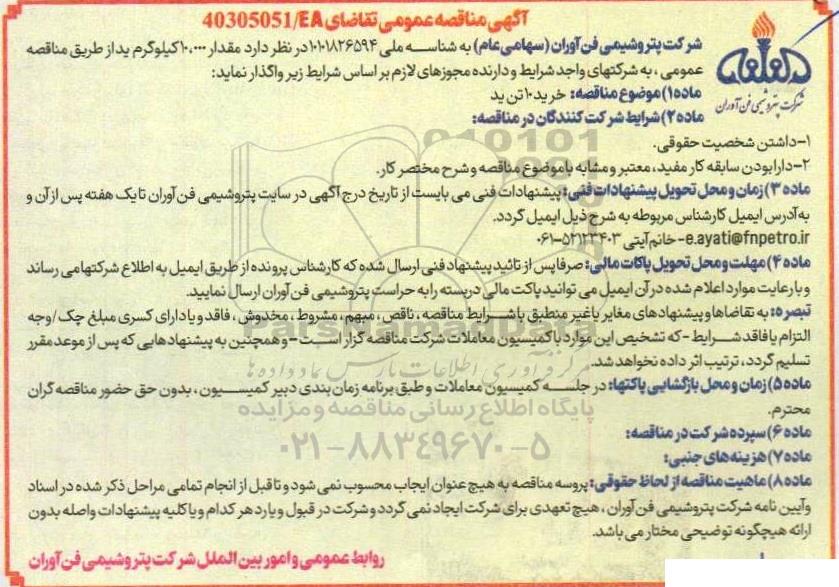 آگهی مناقصه عمومی تقاضای 40305051/EA
شرکت پتروشیمی فن آوران (سهامی عام) به شناسه ملی ۱۰۱۰۱۸۲۶۵۹۴ در نظر دارد مقدار ۱۰,۰۰۰ کیلوگرم ید از طریق مناقصه
عمومی ، به شرکتهای واجد شرایط و دارنده مجوزهای لازم بر اساس شرایط زیر واگذار نماید:
شرکت پتروشیمی فن آوران
ماده ۱) موضوع مناقصه: خرید ۱۰ تن ید
ماده ۲) شرایط شرکت کنندگان در مناقصه:
۱- داشتن شخصیت حقوقی.
۲- دارا بودن سابقه کار مفید، معتبر و مشابه با موضوع مناقصه و شرح مختصر کار.
ماده ۳) زمان و محل تحویل پیشنهادات فنی: پیشنهادات فنی می بایست از تاریخ درج آگهی در سایت پتروشیمی فن آوران تا یک هفته پس از آن و
به آدرس ایمیل کارشناس مربوطه به شرح ذیل ایمیل گردد.
e.ayati@fnpetro.ir- خانم آیتی ۵۲۱۲۳۴۰۳-۰۶۱
ماده ۴) مهلت و محل تحویل پاکات مالی: صرفا پس از تائید پیشنهاد فنی ارسال شده که کارشناس پرونده از طریق ایمیل به اطلاع شرکتها می رساند
و با رعایت موارد اعلام شده در آن ایمیل می توانید پاکت مالی دربسته را به حراست پتروشیمی فن آوران ارسال نمایید.
تبصره: به تقاضاها و پیشنهادهای مغایر یا غیر منطبق با شرایط مناقصه ، ناقص ، مبهم ، مشروط ، مخدوش ، فاقد و یا دارای کسری مبلغ چک /وجه
التزام یا فاقد شرایط - که تشخیص این موارد با کمیسیون معاملات شرکت مناقصه گزار است - و همچنین به پیشنهادهایی که پس از موعد مقرر
تسلیم گردد ، ترتیب اثر داده نخواهد شد.
ماده ۵) زمان و محل بازگشایی پاکتها: در جلسه کمیسیون معاملات و طبق برنامه زمان بندی دبیر کمیسیون ، بدون حق حضور مناقصه گران
محترم.
ماده ۶) سپرده شرکت در مناقصه:
ماده ۷) هزینه های جنبی:
ماده ۸) ماهیت مناقصه از لحاظ حقوقی: پروسه مناقصه به هیچ عنوان ایجاب محسوب نمی شود و تا قبل از انجام تمامی مراحل ذکر شده در اسناد
و آیین نامه شرکت پتروشیمی فن آوران ، هیچ تعهدی برای شرکت ایجاد نمی گردد و شرکت در قبول و یا رد هر کدام و یا کلیه پیشنهادات واصله بدون
ارائه هیچگونه توضیحی مختار می باشد.
روابط عمومی و امور بین الملل شرکت پتروشیمی فن آوران
ParsNamadData
مرکز فرآوری اطلاعات پارس نماد داده ها
پایگاه اطلاع رسانی مناقصه و مزایده
۰۲۱-۸۸۳۴۹۶۷۰-۵